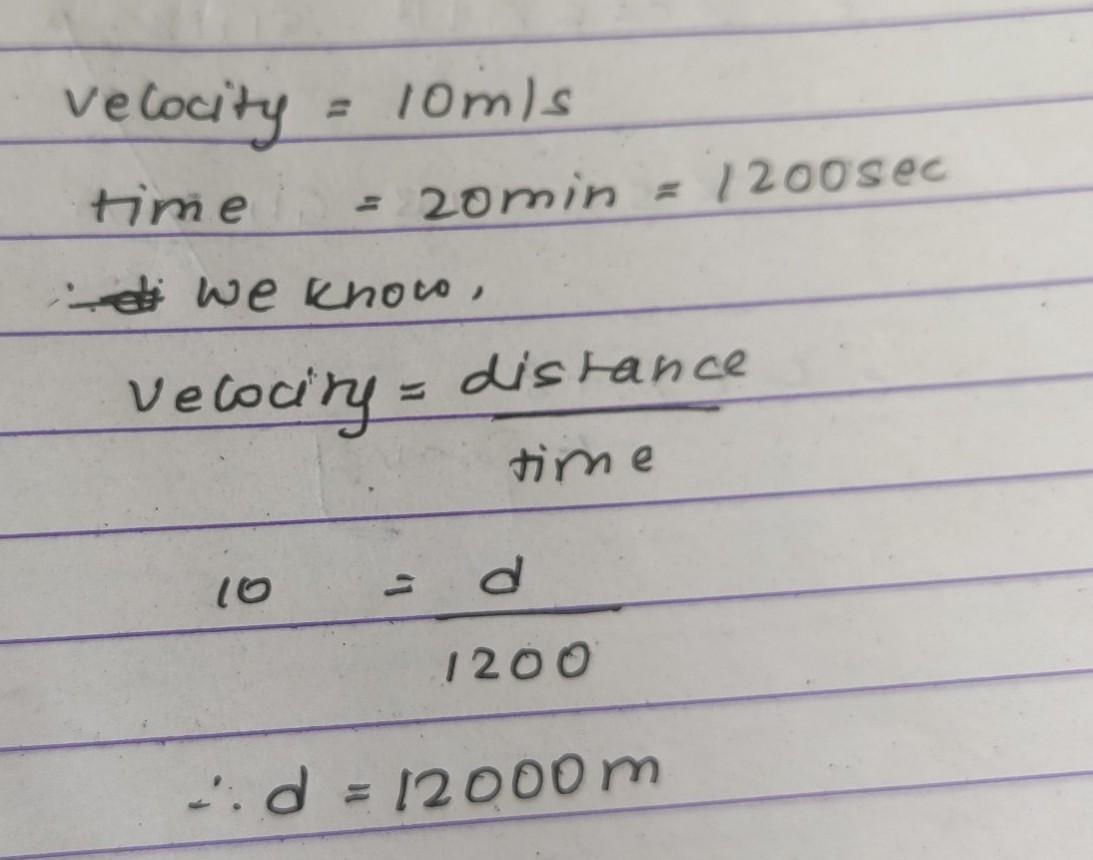 velocity = 10m/s
time = 20min = 1200sec
∴ we know,
velocity = distance
time
10 = d
1200
∴ d = 12000m